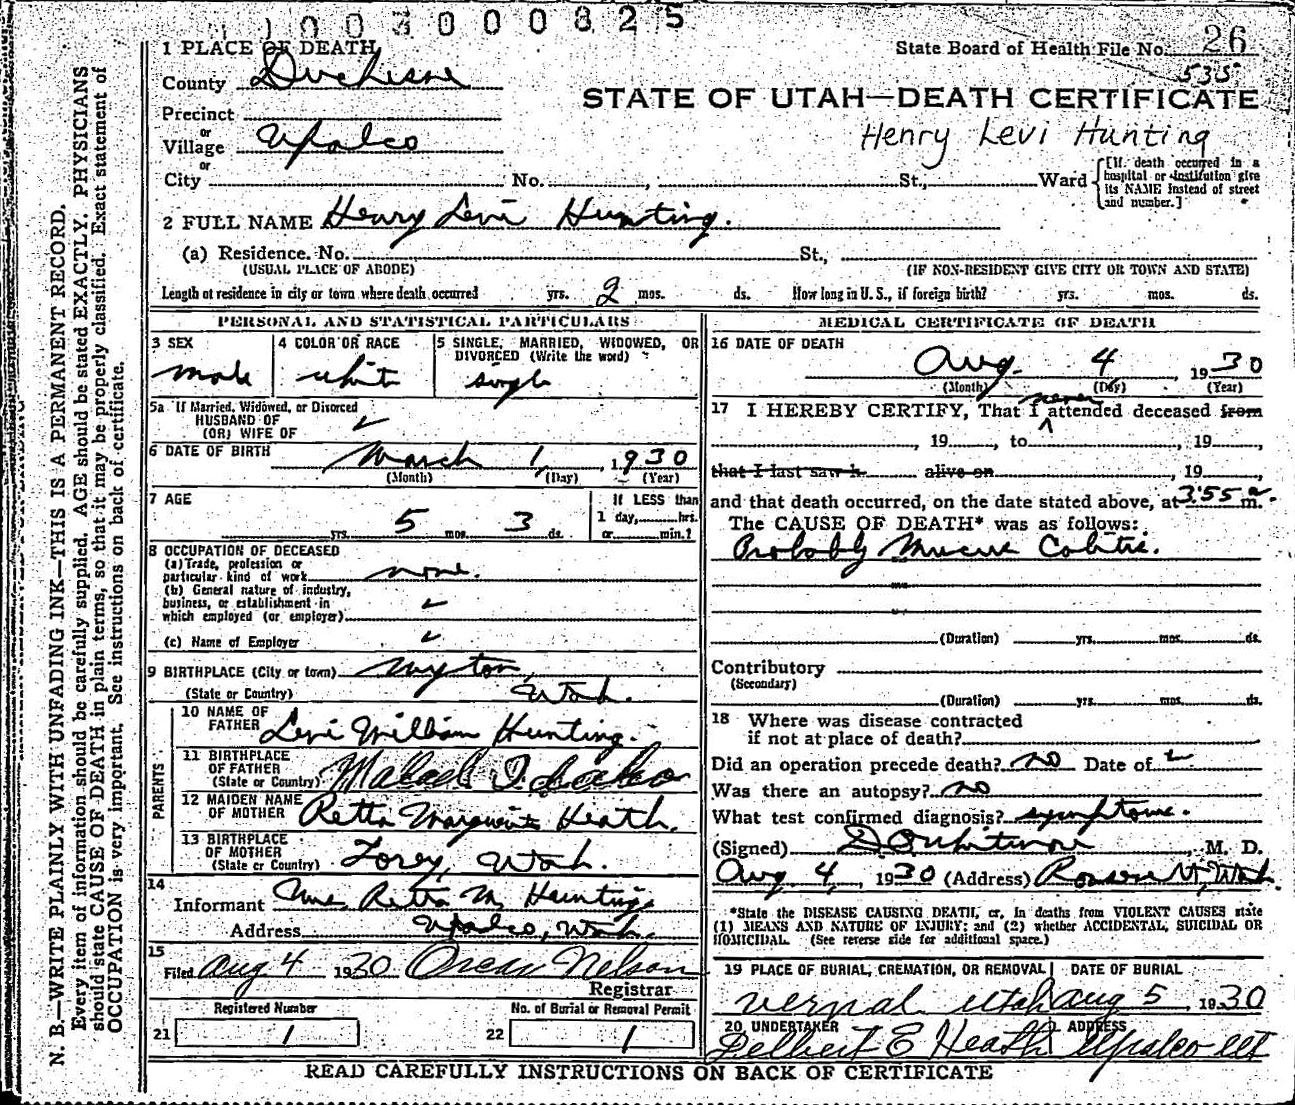 1003000825
1 PLACE OF DEATH
State Board of Health File No. 26
County Duchesne
535
STATE OF UTAH—DEATH CERTIFICATE
Precinct
or
Village Upalco
Henry Levi Hunting
or
City No. , St., Ward
[If death occurred in a hospital or institution give its NAME instead of street and number.]
2 FULL NAME Henry Levi Hunting.
(a) Residence. No. St.,
(USUAL PLACE OF ABODE) (IF NON-RESIDENT GIVE CITY OR TOWN AND STATE)
Length of residence in city or town where death occurred yrs. 2 mos. ds. How long in U. S., if foreign birth? yrs. mos. ds.
PERSONAL AND STATISTICAL PARTICULARS
3 SEX 4 COLOR OR RACE 5 SINGLE, MARRIED, WIDOWED, OR DIVORCED (Write the word)
male white single
5a If Married, Widowed, or Divorced
HUSBAND OF
(OR) WIFE OF
6 DATE OF BIRTH March 1, 1930
(Month) (Day) (Year)
7 AGE If LESS than
5 3 1 day, hrs.
yrs. mos. ds. or min.?
8 OCCUPATION OF DECEASED
(a) Trade, profession or
particular kind of work none.
(b) General nature of industry,
business, or establishment in
which employed (or employer)
(c) Name of Employer
9 BIRTHPLACE (City or town) Myton,
(State or Country) Utah.
PARENTS
10 NAME OF
FATHER Levi William Hunting.
11 BIRTHPLACE
OF FATHER
(State or Country)
12 MAIDEN NAME
OF MOTHER Retta Marguerite Heath.
13 BIRTHPLACE
OF MOTHER
(State or Country) Torey, Utah.
14
Informant Mrs. Retta M. Hunting
Address Upalco, Utah.
15
Filed Aug 4 1930 Oscar Nelson
Registrar
Registered Number No. of Burial or Removal Permit
21 1 22 1
MEDICAL CERTIFICATE OF DEATH
16 DATE OF DEATH
Aug. 4, 1930
(Month) (Day) (Year)
never
17 I HEREBY CERTIFY, That I attended deceased from
, 19 , to , 19 ,
that I last saw h alive on , 19
and that death occurred, on the date stated above, at 3:55 a. m.
The CAUSE OF DEATH* was as follows:
Probably Mucus Colitis.
(Duration) yrs. mos. ds.
Contributory
(Secondary)
(Duration) yrs. mos. ds.
18 Where was disease contracted
if not at place of death?
Did an operation precede death? no Date of
Was there an autopsy? no
What test confirmed diagnosis? symptoms.
(Signed) , M. D.
Aug 4, 1930 (Address) Utah.
*State the DISEASE CAUSING DEATH, or, in deaths from VIOLENT CAUSES state
(1) MEANS AND NATURE OF INJURY; and (2) whether ACCIDENTAL, SUICIDAL OR
HOMICIDAL. (See reverse side for additional space.)
19 PLACE OF BURIAL, CREMATION, OR REMOVAL DATE OF BURIAL
Vernal Utah Aug 5 1930
20 UNDERTAKER ADDRESS
Delbert E Heath Upalco Ut
READ CAREFULLY INSTRUCTIONS ON BACK OF CERTIFICATE
N. B.—WRITE PLAINLY WITH UNFADING INK—THIS IS A PERMANENT RECORD.
Every item of information should be carefully supplied. AGE should be stated EXACTLY. PHYSICIANS
should state CAUSE OF DEATH in plain terms, so that it may be properly classified. Exact statement of
OCCUPATION is very important. See instructions on back of certificate.